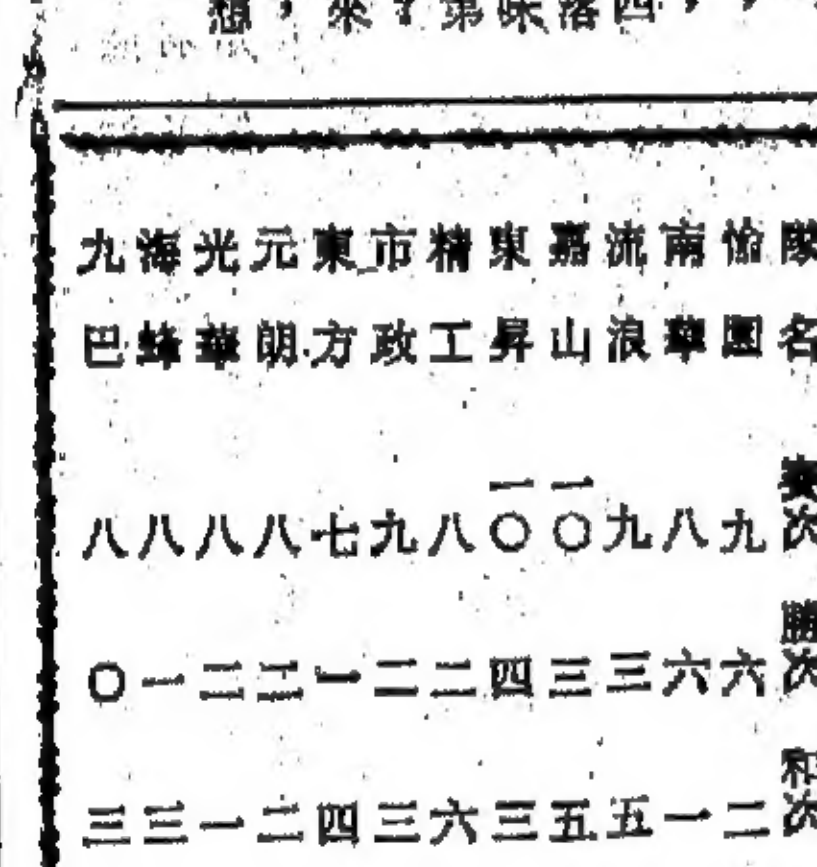 隊名 賽次 勝次 和次
愉園 九 六 二
南華 八 六 一
流浪 九 三 五
嘉山 一〇 三 五
東昇 一〇 四 三
精工 八 二 六
市政 九 二 三
東方 七 一 四
元朗 八 二 二
光華 八 二 一
海蜂 八 一 三
九巴 八 〇 三